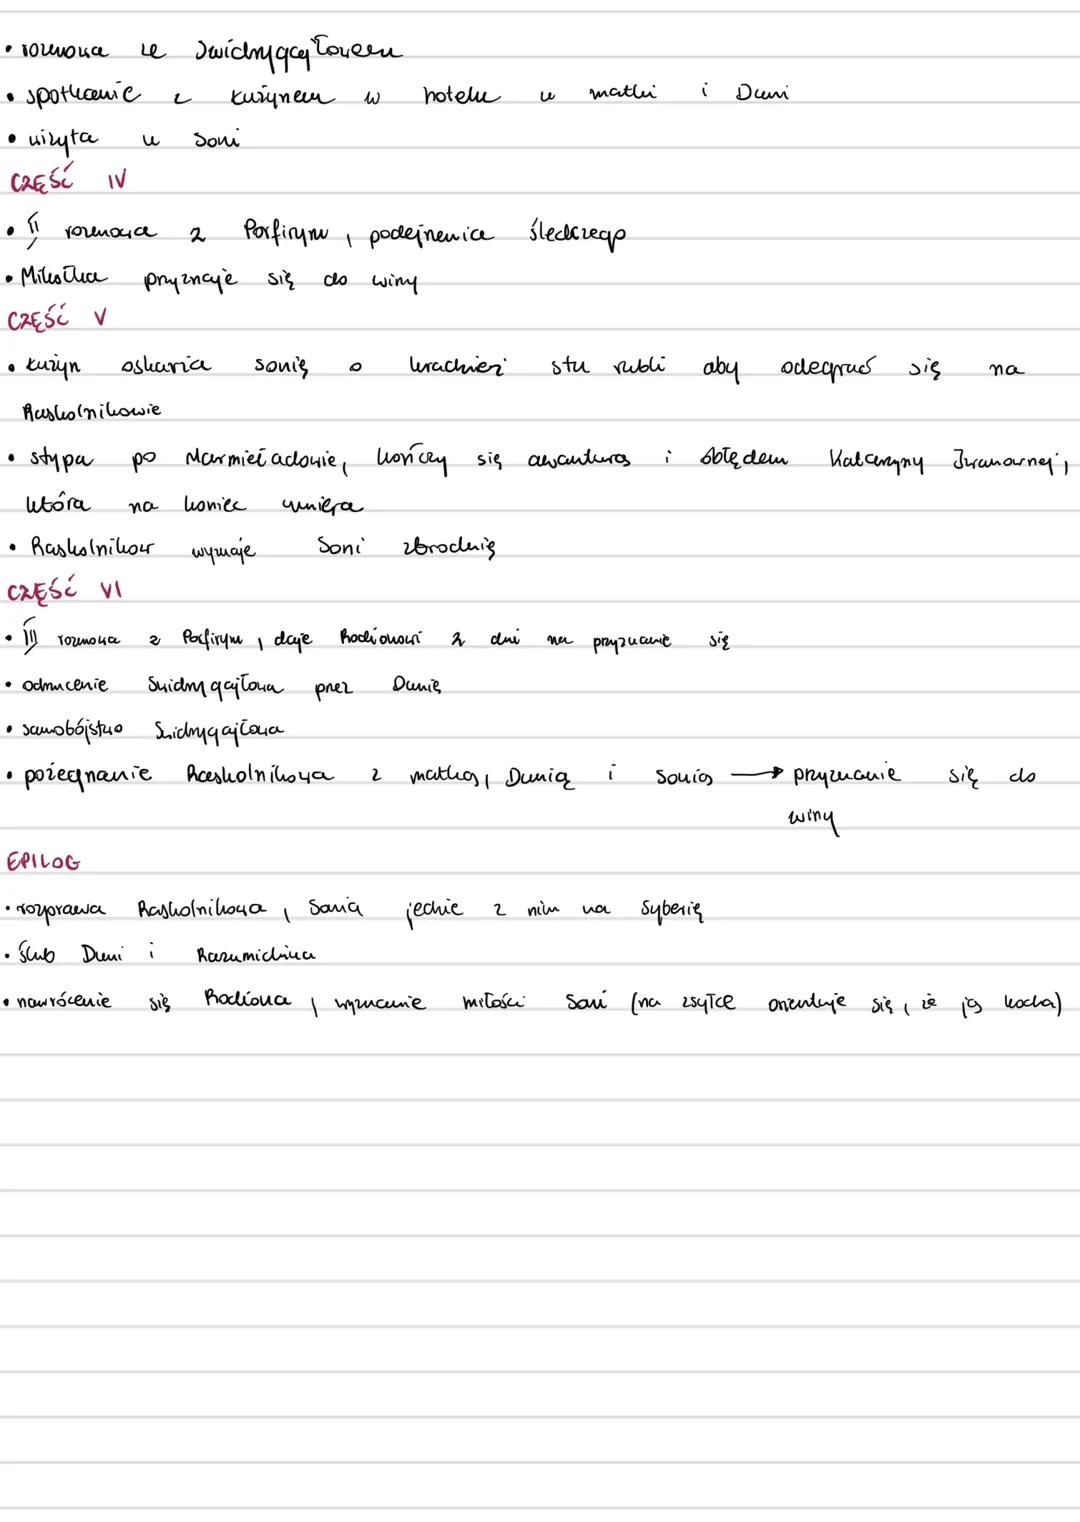 • rozmowa ze Swidrygajłowem
• spotkanie z Łużynem w hotelu u matki i Duni
• wizyta u Soni
CZĘŚĆ IV
• II rozmowa z Porfirym, podejrzenia śledczego
• Mikołka przyznaje się do winy
CZĘŚĆ V
• Łużyn oskarża Sonię o kradzież stu rubli aby odegrać się na
Raskolnikowie
• stypa po Marmieładowie, kończy się awanturą i obłędem Katarzyny Iwanownej,
która na koniec umiera
• Raskolnikow wyznaje Soni zbrodnię
CZĘŚĆ VI
• III rozmowa z Porfirym, daje Rodionowi 2 dni na przyznanie się
• odrzucenie Swidrygajłowa przez Dunię
• samobójstwo Swidrygajłowa
• pożegnanie Raskolnikowa z matką, Dunią i Sonią → przyznanie się do
winy
EPILOG
• rozprawa Raskolnikowa, Sonia jedzie z nim na Syberię
• Ślub Duni i Razumichina
• nawrócenie się Rodiona, wyznanie miłości Soni (na zsyłce orientuje się, że ją kocha)